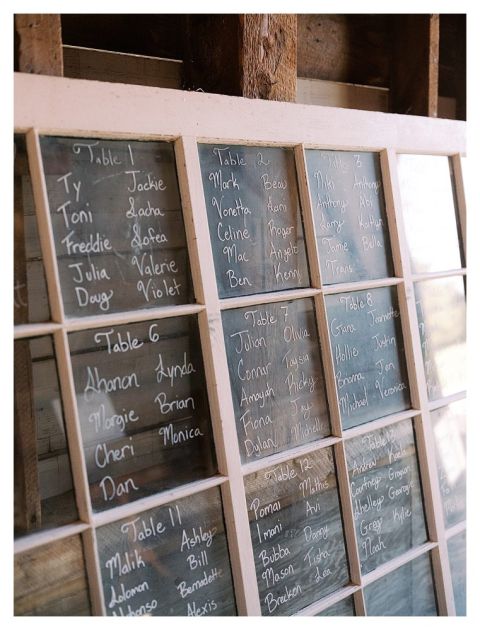 Table 1
Ty Jackie
Toni Sacha
Freddie Sofea
Julia Valerie
Doug Violet
Table 2
Mark Beau
Vonetta
Celine Roger
Mac Angelo
Ben Kenny
Table 3
Niki Anthony
Anthony Abi
Larry Kaitlyn
Jamie Bella
Travis
Table 6
Shanon Lynda
Margie Brian
Cheri Monica
Dan
Table 7
Julian Olivia
Connar Taysia
Amayah Ricky
Fiona Jay
Dylan Michell
Table 8
Giana Jeannette
Hollie Justin
Brianna Jen
Michael Veronica
Table 11
Malik Ashley
Solomon Bill
Alphonso Bernadette
Alexis
Table 12
Pomai Mathis
Imani Avi
Bubba Danny
Mason Tisha
Breckon Lea
Table 13
Andrew Kaela
Courtney Grayson
Shelley Georgie
Greg Kylie
Noah